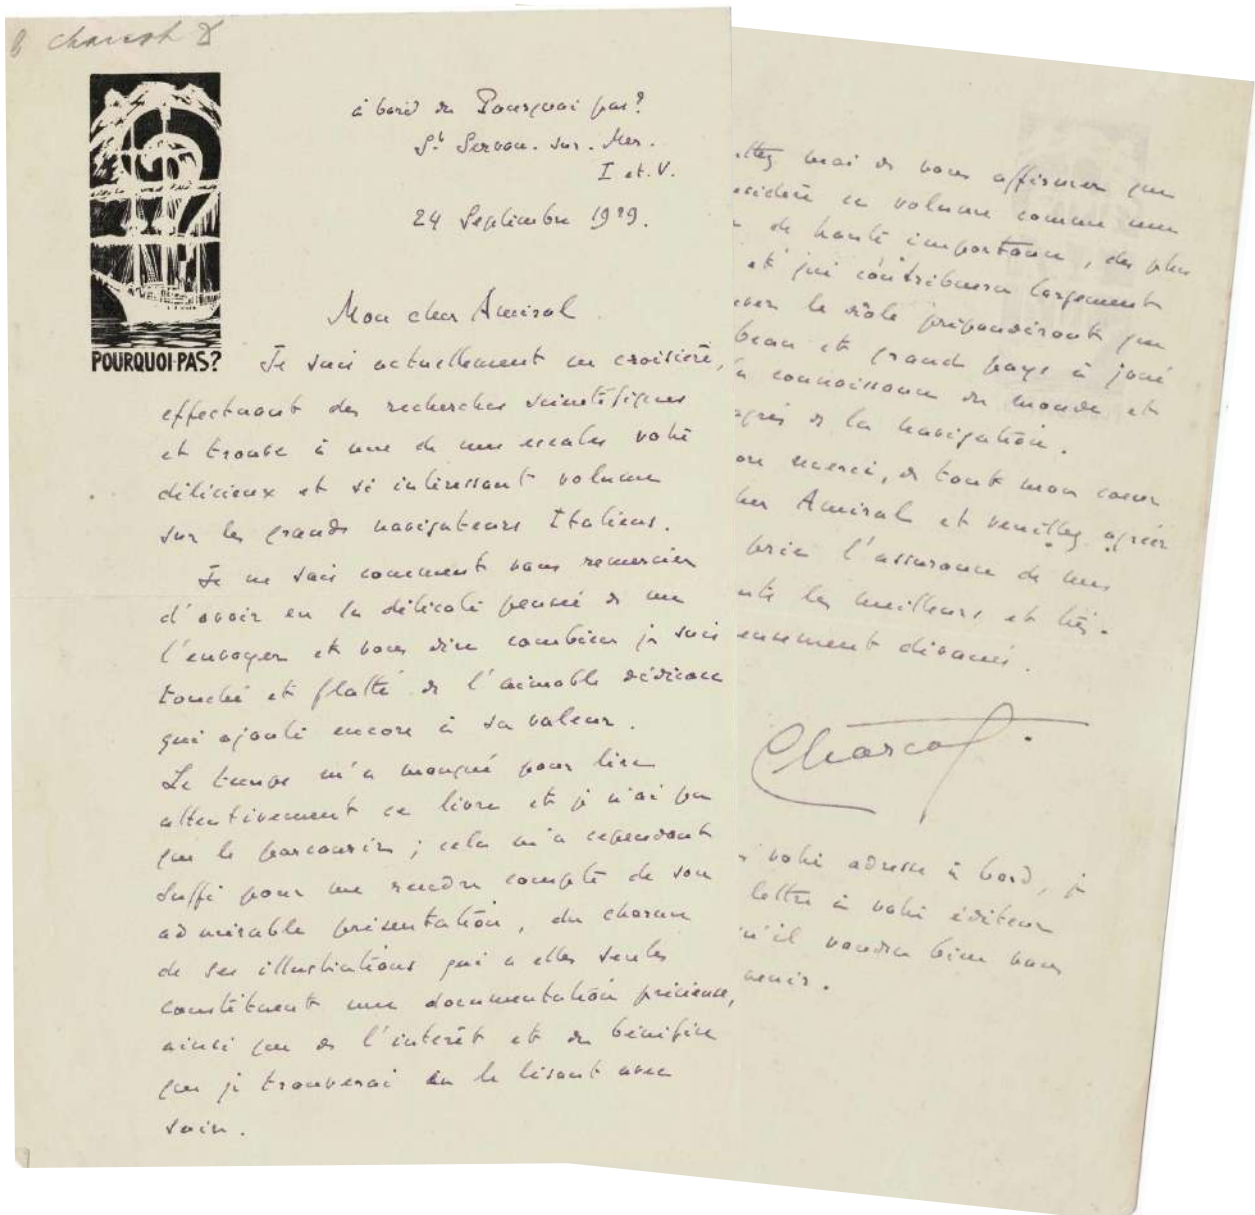 Charcot
POURQUOI-PAS?
à bord du Pourquoi pas?
St Servan. sur. Mer.
I et. V.
24 Septembre 1929.
Mon cher Amiral
Je suis actuellement en croisière,
effectuant des recherches scientifiques
et trouve à une de mes escales votre
délicieux et si intéressant volume
sur les grands navigateurs Italiens.
Je ne sais comment vous remercier
d'avoir eu la délicate pensée de me
l'envoyer et vous dire combien je suis
touché et flatté de l'aimable dédicace
qui ajoute encore à sa valeur.
Le temps m'a manqué pour lire
attentivement ce livre et je n'ai pu
que le parcourir ; cela m'a cependant
suffi pour me rendre compte de son
admirable présentation, du charme
de ses illustrations qui a elles seules
constituent une documentation précieuse,
ainsi que de l'intérêt et du bénéfice
que je trouverai en le lisant avec
soin.
ttez moi de vous affirmer que
nsidère ce volume comme une
de haute importance, des plus
et qui contribuera largement
ver le rôle prépondérant que
beau et grand pays a joué
la connaissance du monde et
ogrès de la navigation.
ore merci, de tout mon coeur
her Amiral et veuillez agréer
prie l'assurance de mes
nts les meilleurs, et très.
ennement dévoués.
Charcot.
votre adresse à bord, je
lettre à votre éditeur
u'il voudra bien vous
venir.